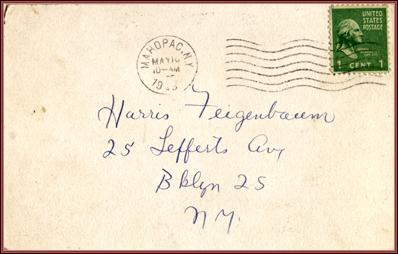 UNITED
STATES
POSTAGE
MAHOPAC, N.Y.
10-AM
1 CENT 1
Harris Feigenbaum
25 Lefferts Ave
Bklyn 25
N.Y.